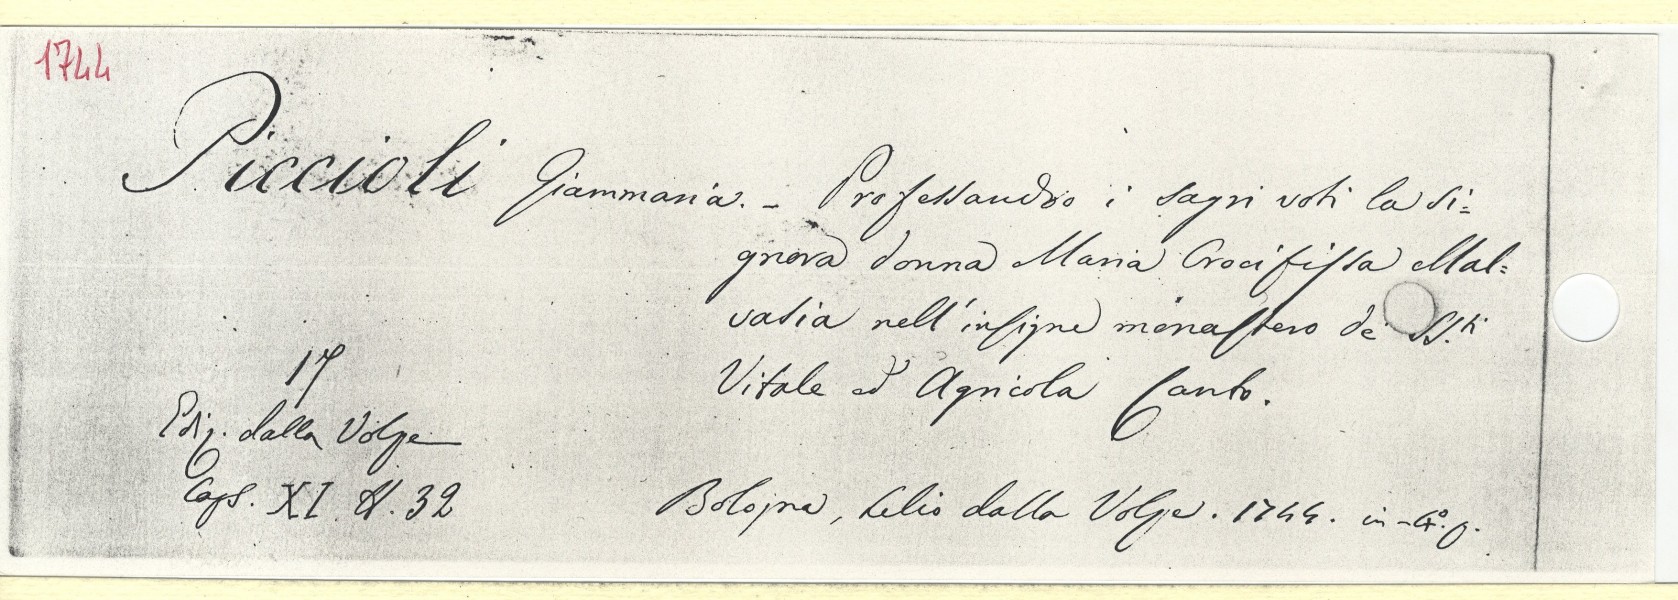 1744
Piccioli Giammaria. - Professando i sagri voti la si=
gnora donna Maria Crocifissa Mal=
vasia nell'insigne monastero de' SS.ti
Vitale ed Agricola Canto.
17
Ediz. dalla Volpe
Caps. XI. N. 32
Bologna, Lelio dalla Volpe. 1744. in-4º. g.